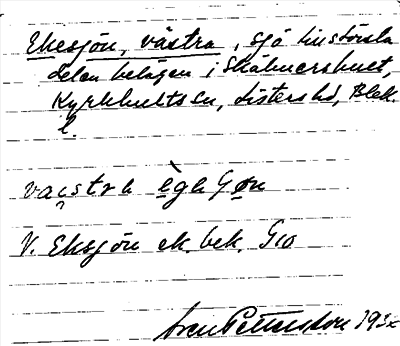 Ekesjön, västra, sjö till största
delen belägen i Skabuershuet,
Kyrkhults sn, Listers hd, Blek.
l.
va strh ègh Gøn
V. Eksjön ek. bek. G10
Sven Pettersson 193